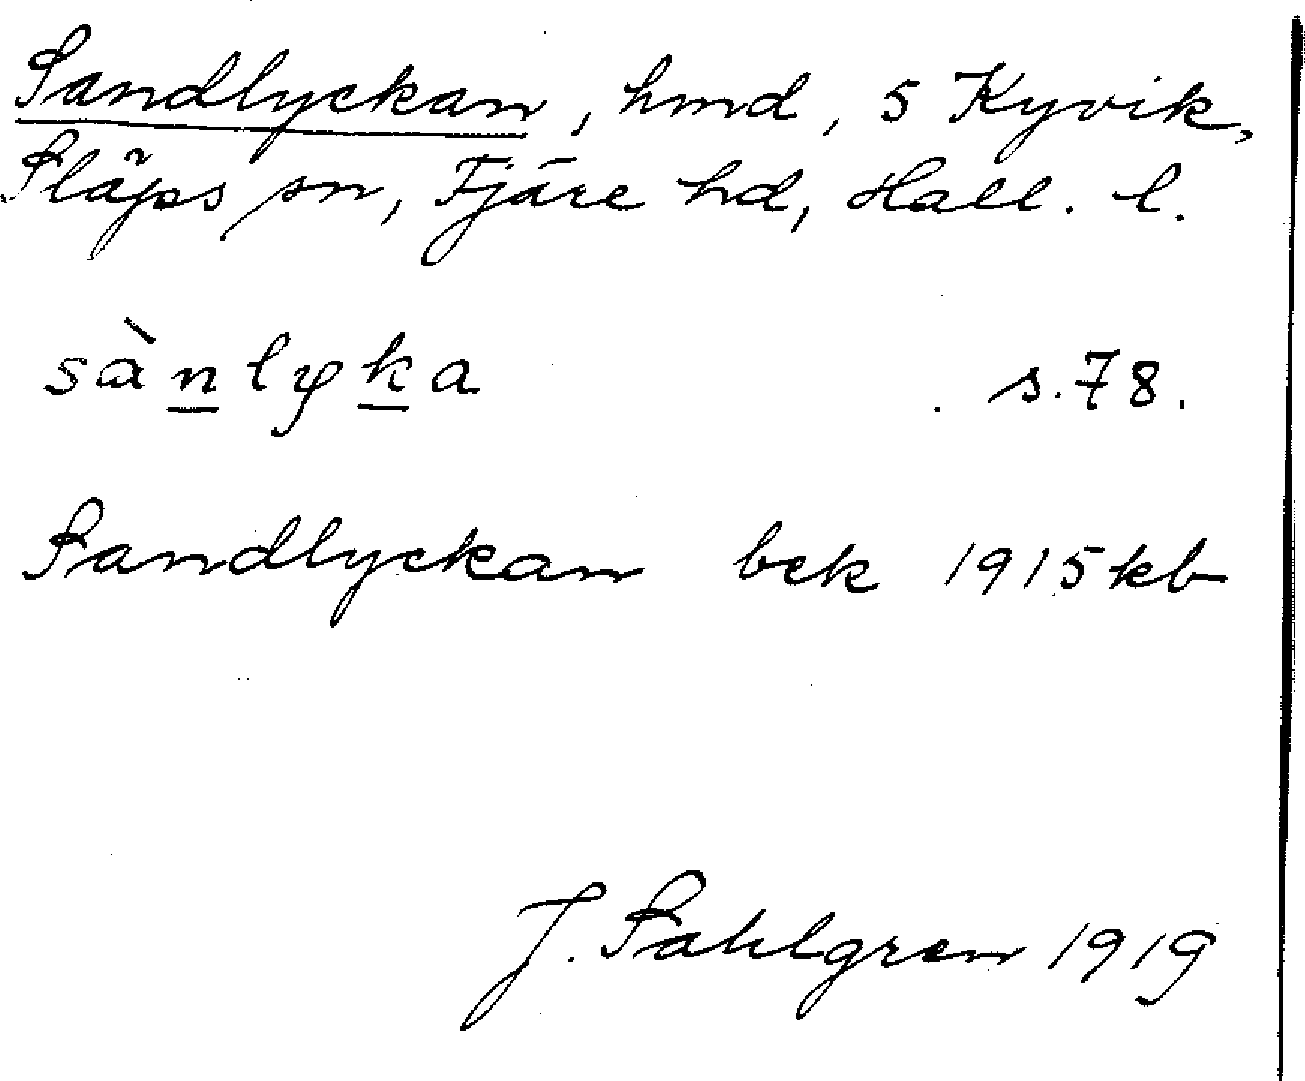 Sandlyckan, hmd, 5 Kyvik,
Släps sn, Fjäre hd, Hall. l.
sànlyka s.78.
Sandlyckan bek 1915 kb
J. Sahlgren 1919